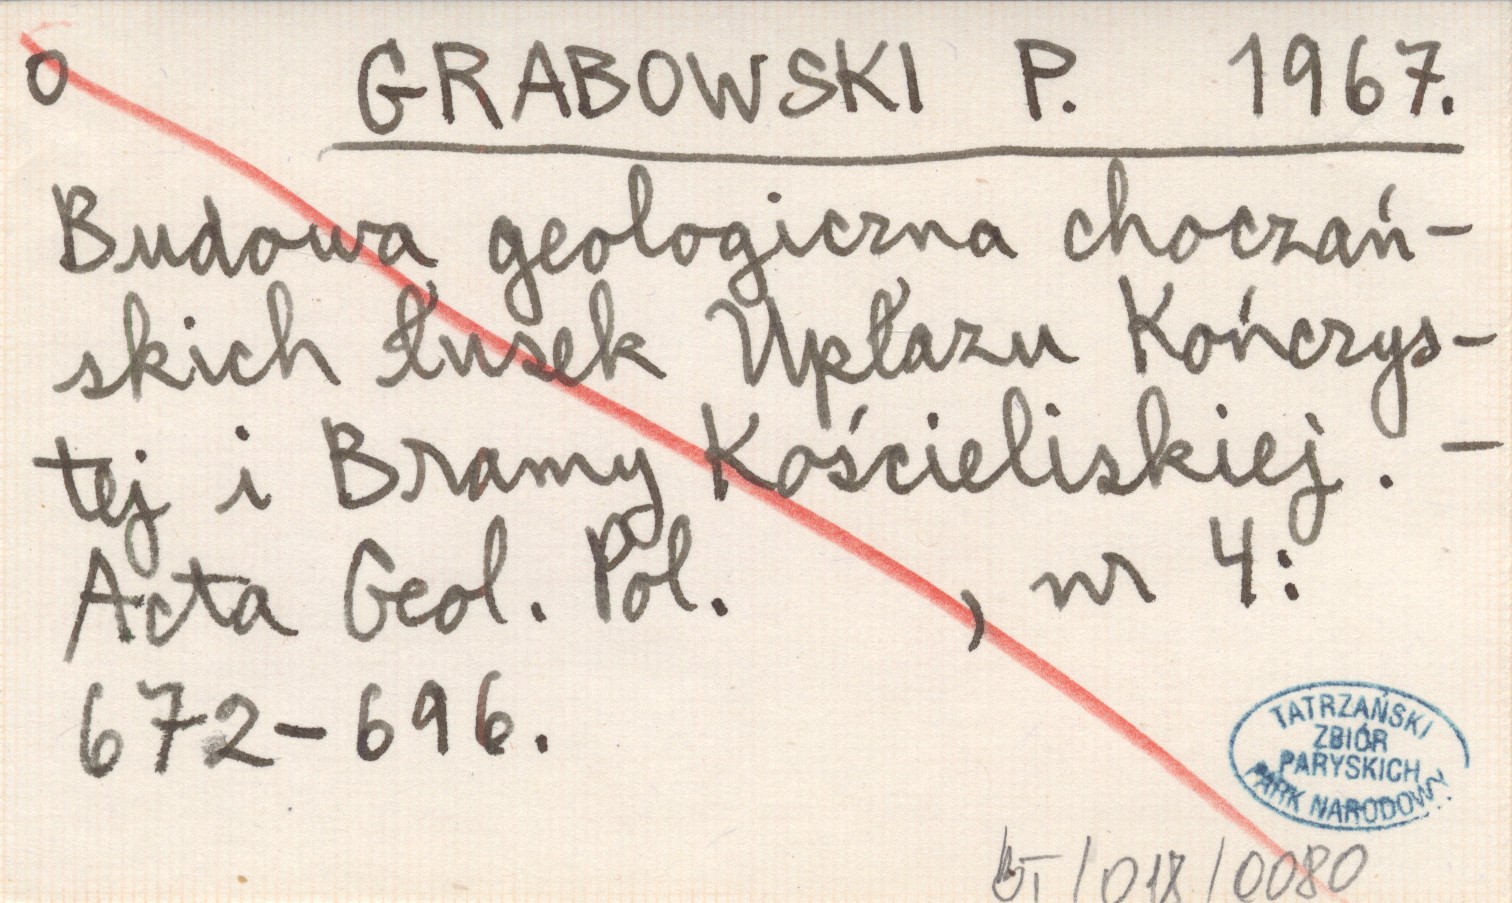 o GRABOWSKI P. 1967.
Budowa geologiczna choczań-
skich łusek Upłazu Kończys-
tej i Bramy Kościeliskiej. —
Acta Geol. Pol. , nr 4:
672-696.
TATRZAŃSKI
ZBIÓR
PARYSKICH
PARK NARODOWY
/018/0080